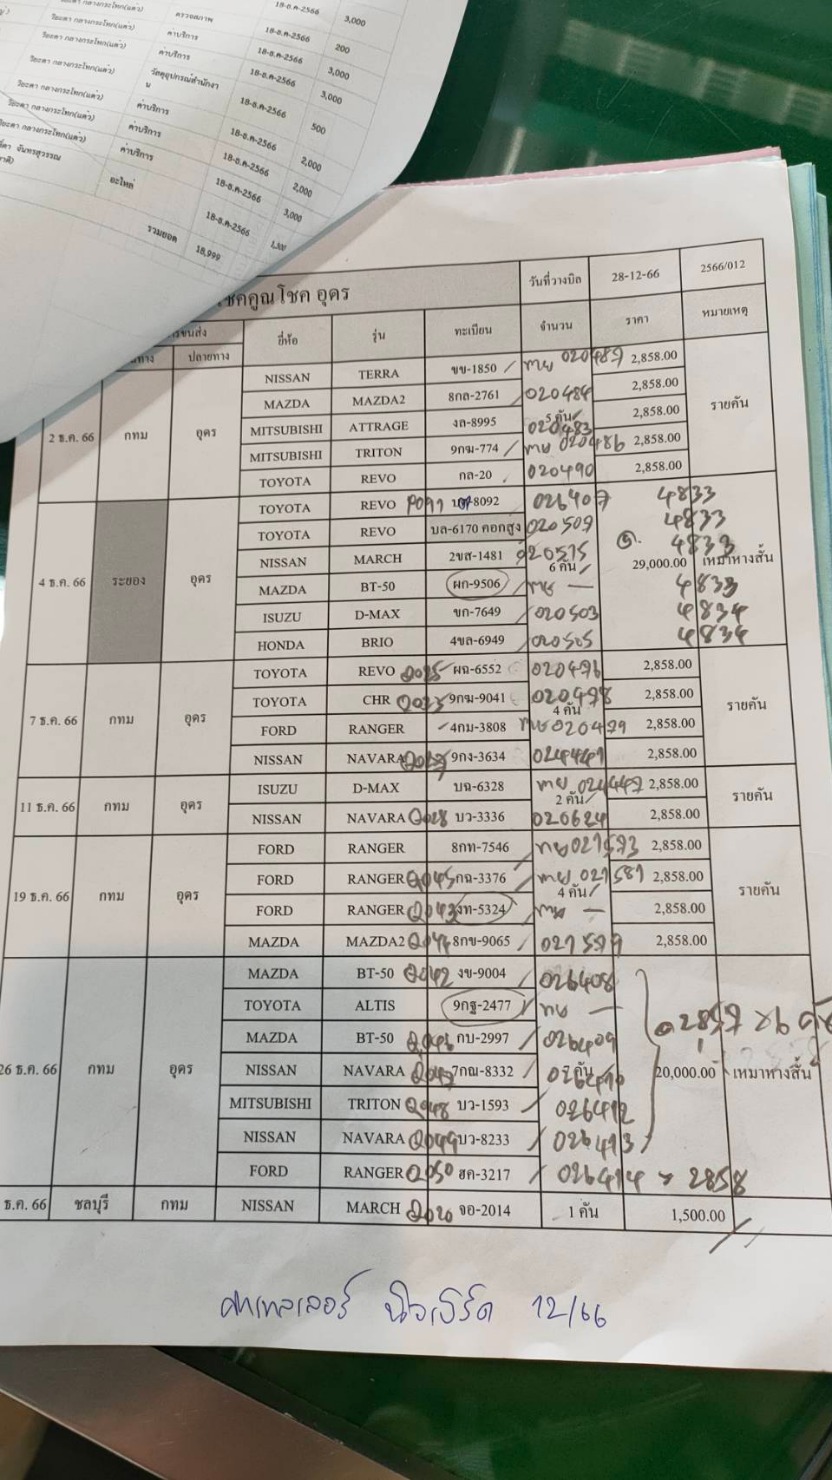 ตรวจสภาพ 18-ธ.ค-2566 3,000
วิยะดา กลางกระโทก(แต๋ว) ค่าบริการ 18-ธ.ค-2566 200
วิยะดา กลางกระโทก(แต๋ว) ค่าบริการ 18-ธ.ค-2566 3,000
วิยะดา กลางกระโทก(แต๋ว) วัสดุอุปกรณ์สำนักงาน 18-ธ.ค-2566 3,000
วิยะดา กลางกระโทก(แต๋ว) ค่าบริการ 18-ธ.ค-2566 500
วิยะดา กลางกระโทก(แต๋ว) ค่าบริการ 18-ธ.ค-2566 2,000
จันทรสุวรรณ อะไหล่ 18-ธ.ค-2566 2,000
18-ธ.ค-2566 3,000
รวมยอด 18,999
โชคคูณโชค อุดร วันที่วางบิล 28-12-66 2566/012
ขนส่ง ยี่ห้อ รุ่น ทะเบียน จำนวน ราคา หมายเหตุ
ทาง ปลายทาง
NISSAN TERRA ขข-1850 020487 2,858.00
MAZDA MAZDA2 8กล-2761 020484 2,858.00
2 ธ.ค. 66 กทม อุดร MITSUBISHI ATTRAGE งล-8995 5 คัน 020483 2,858.00 รายคัน
MITSUBISHI TRITON 9กฆ-774 020486 2,858.00
TOYOTA REVO กล-20 020490 2,858.00
TOYOTA REVO 8092 026407 4833
TOYOTA REVO บล-6170 คอกสูง 020509 4833
NISSAN MARCH 2ขส-1481 020515 4833
4 ธ.ค. 66 ระยอง อุดร 6 คัน 29,000.00 เหมาหางสั้น
MAZDA BT-50 ผก-9506 — 4833
ISUZU D-MAX ขก-7649 020503 4834
HONDA BRIO 4ขล-6949 020505 4834
TOYOTA REVO ผฉ-6552 020496 2,858.00
TOYOTA CHR 9กฆ-9041 020498 2,858.00
7 ธ.ค. 66 กทม อุดร 4 คัน รายคัน
FORD RANGER 4กม-3808 020499 2,858.00
NISSAN NAVARA 9กง-3634 2,858.00
ISUZU D-MAX บฉ-6328 2,858.00
11 ธ.ค. 66 กทม อุดร 2 คัน รายคัน
NISSAN NAVARA Q028 บว-3336 020624 2,858.00
FORD RANGER 8กท-7546 2,858.00
FORD RANGER Q045 กฉ-3376 021581 2,858.00
19 ธ.ค. 66 กทม อุดร 4 คัน รายคัน
FORD RANGER Q043 งท-5324 — 2,858.00
MAZDA MAZDA2 Q044 8กข-9065 021579 2,858.00
MAZDA BT-50 Q042 งข-9004 026408
TOYOTA ALTIS 9กฐ-2477 —
MAZDA BT-50 Q046 กบ-2997 026409
26 ธ.ค. 66 กทม อุดร NISSAN NAVARA Q047 7กฌ-8332 20,000.00 เหมาหางสั้น
MITSUBISHI TRITON Q048 บว-1593 026412
NISSAN NAVARA Q049 บว-8233 026413
FORD RANGER Q050 ฮค-3217 026414 2858
ธ.ค. 66 ชลบุรี กทม NISSAN MARCH Q020 จอ-2014 1 คัน 1,500.00
12/66